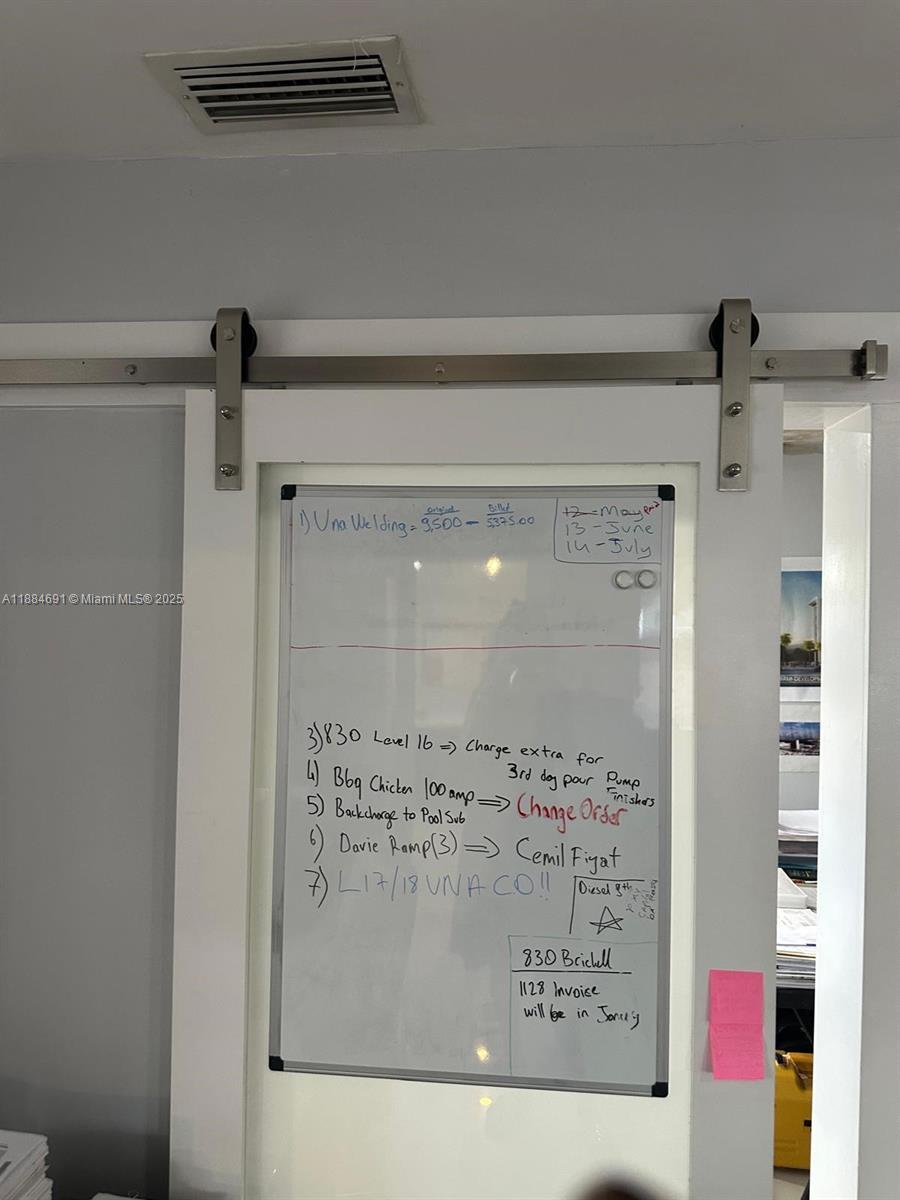 Original Billed
1) Una Welding = 9,500 - 5,375.00
12 - May
13 - June
14 - July
A11884691 © Miami MLS® 2025
3) 830 Level 16 => Charge extra for
3rd day pour Pump
Finishers
4) Bbq Chicken 100 amp => Change Order
5) Backcharge to Pool Sub
6) Davie Ramp (3) => Cemil Fiyat
7) L17/18 UNA CO!!
Diesel 8th
830 Brickell
1128 Invoise
will be in